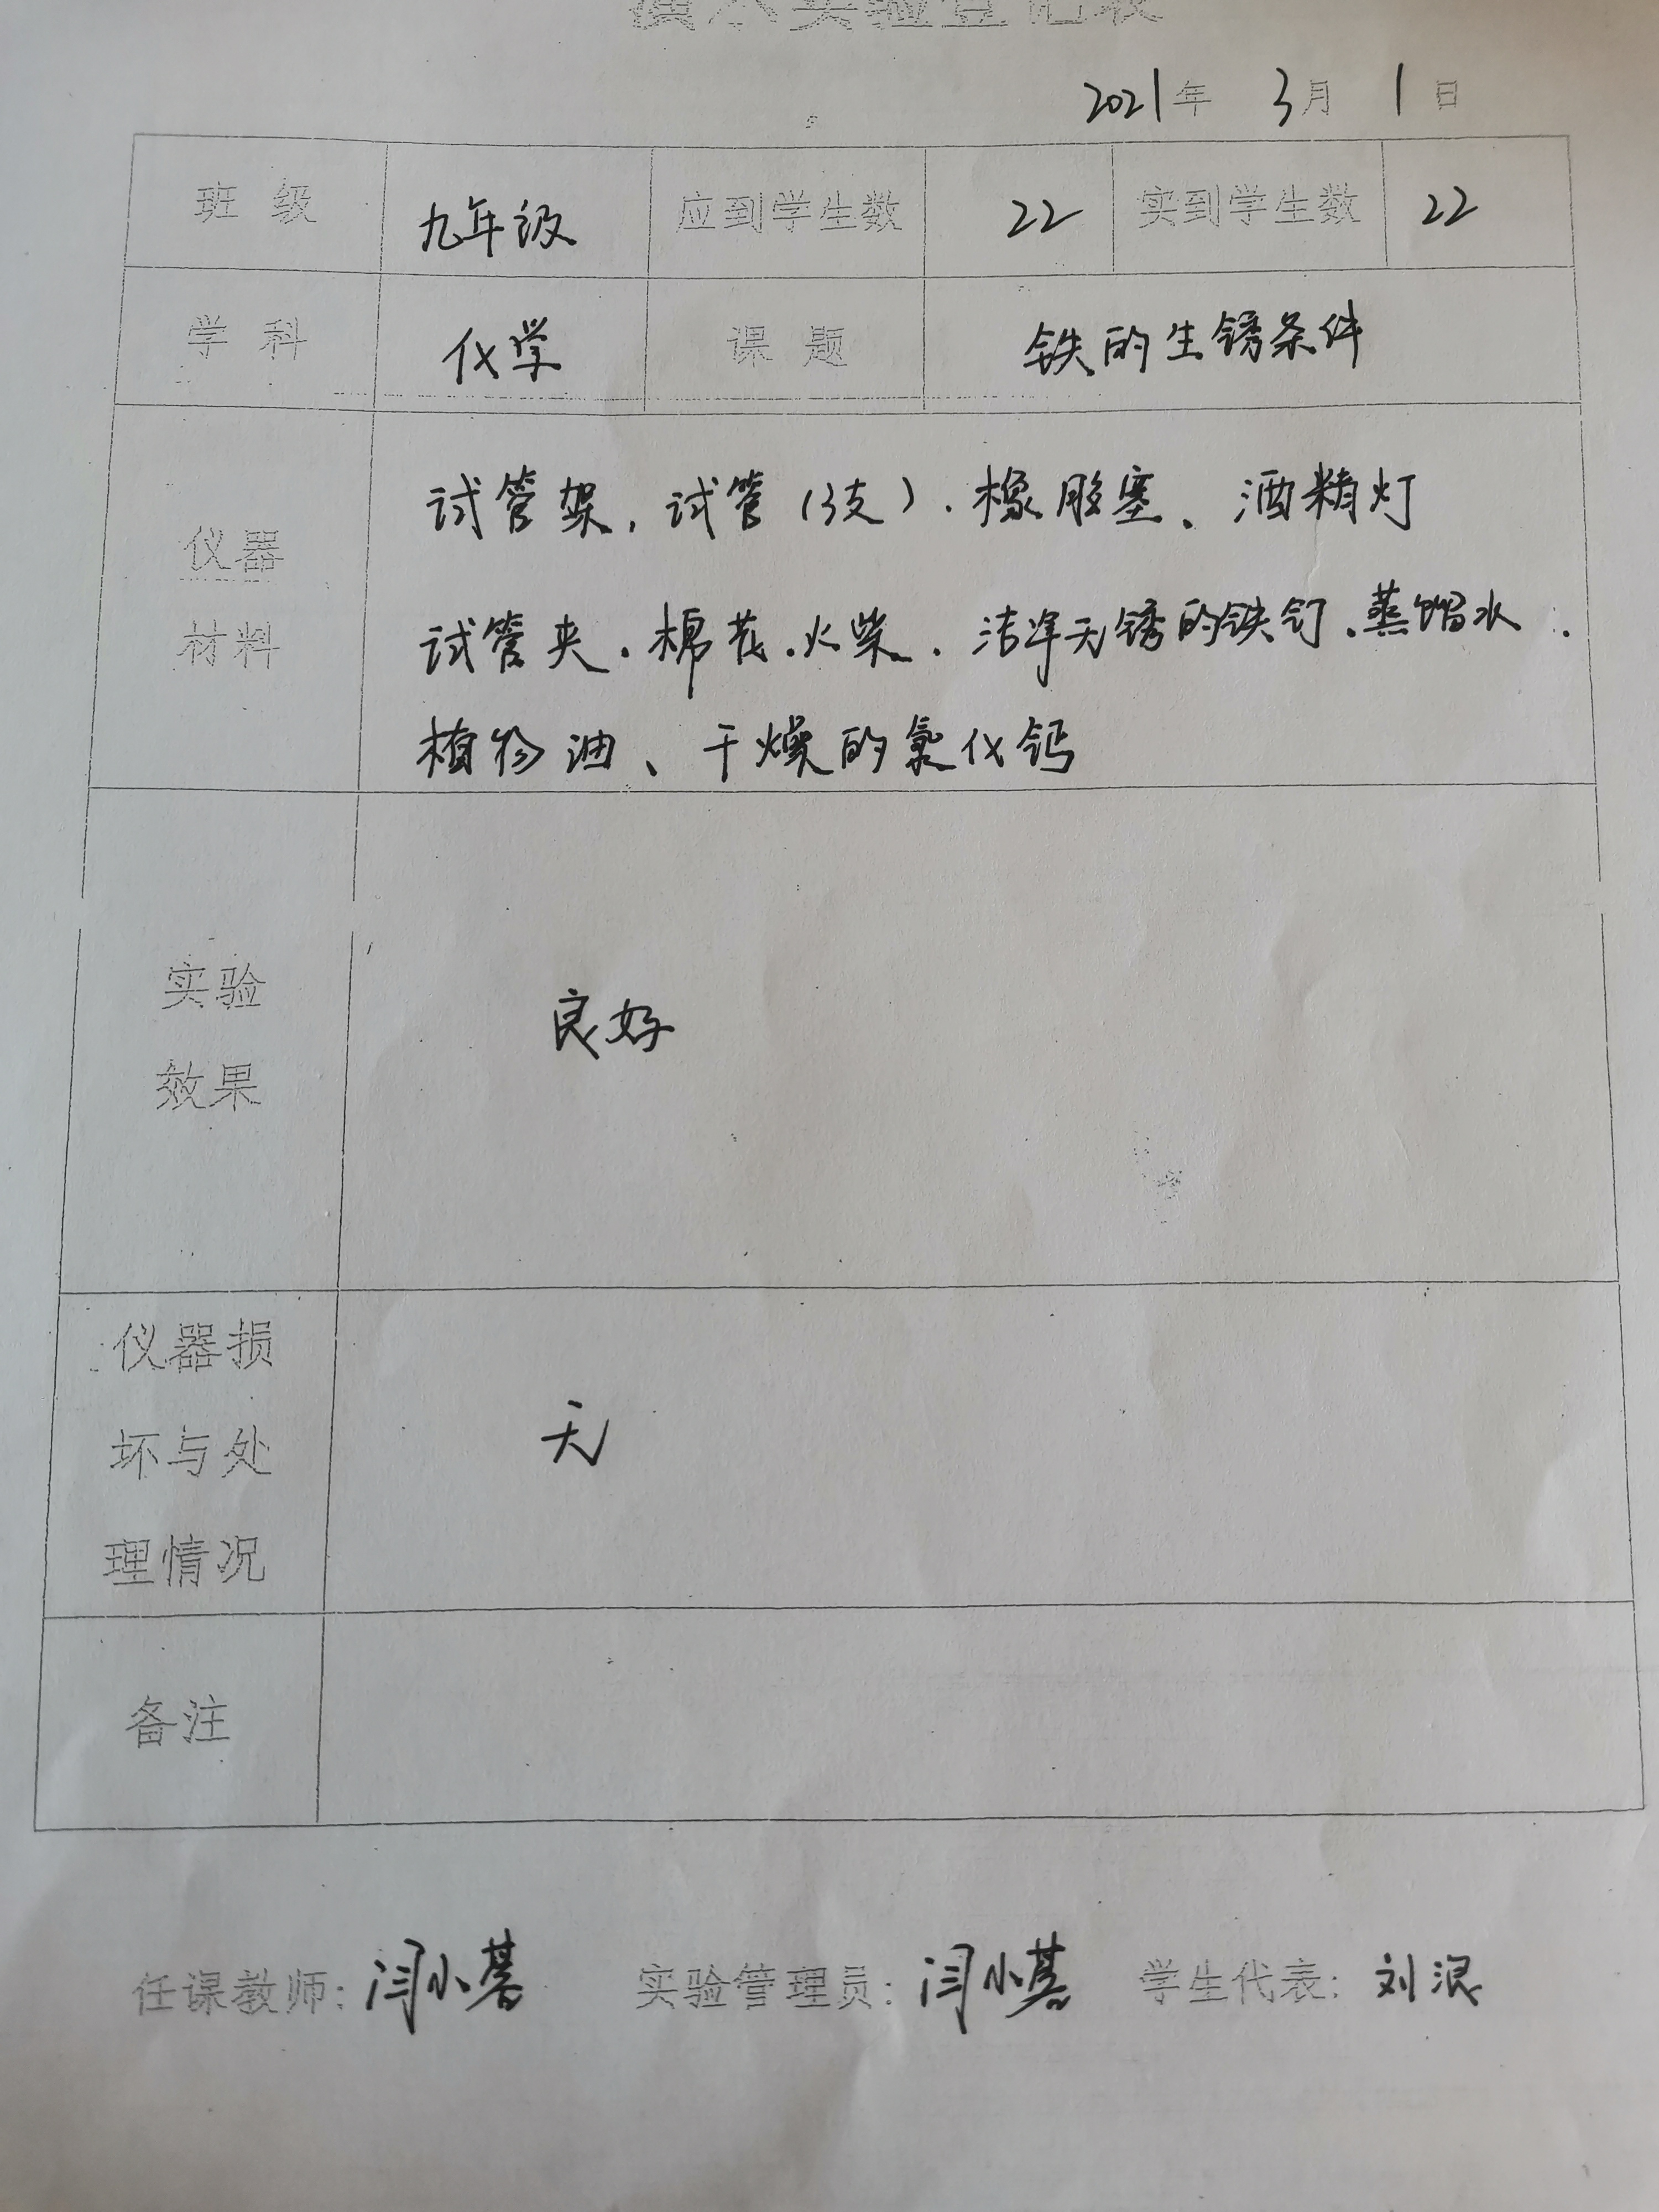 演示实验登记表
2021年 3月 1日
班 级 九年级 应到学生数 22 实到学生数 22
学 科 化学 课 题 铁的生锈条件
仪器
材料
试管架，试管（3支）.橡胶塞、酒精灯
试管夹.棉花.火柴.洁净无锈的铁钉.蒸馏水.
植物油、干燥的氯化钙
实验
效果
良好
仪器损
坏与处
理情况
无
备注
任课教师: 闫小 实验管理员: 闫小 学生代表: 刘浪